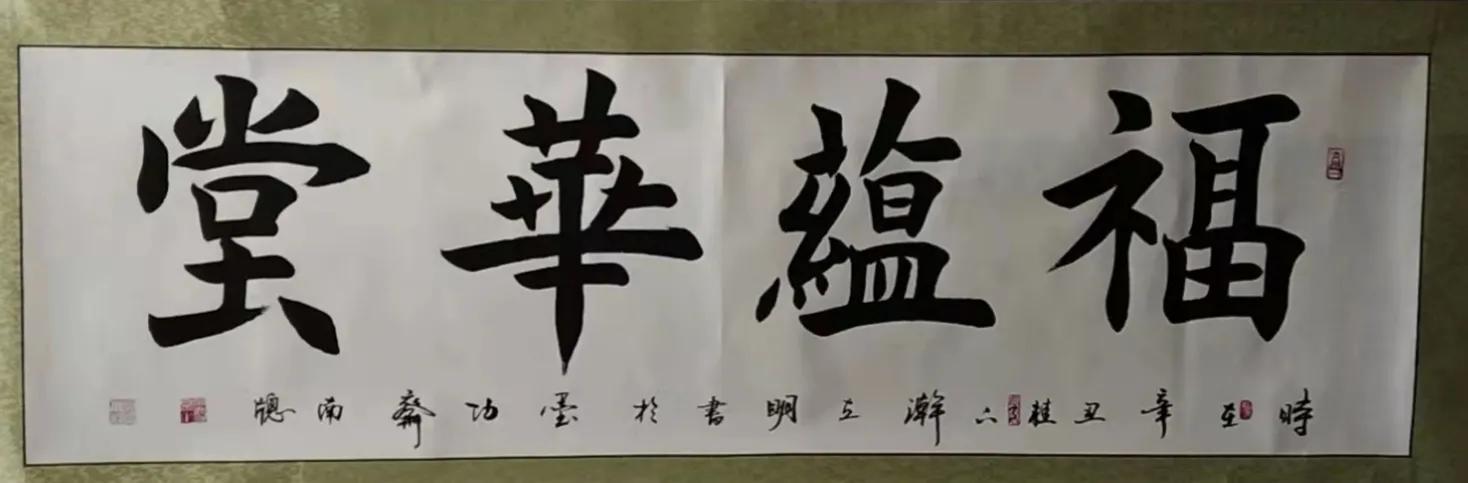 福蘊華堂
時在辛丑桂六瀚立明書於墨功齋南牕